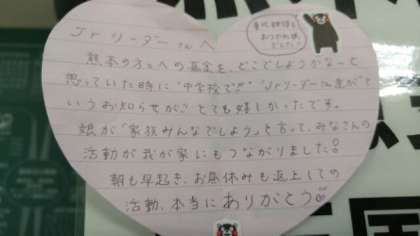 Jrリーダーさんへ
熊本の方々への募金を、どこでしようかなーと
思っていた時に"中学校で!!""Jrリーダーさん達が"と
いうお知らせが、とても嬉しかったです。
娘が「家族みんなでしよう」と言って、みなさんの
活動が我が家にもつながりました!
朝も早起き、お昼休みも返上しての
活動、本当にありがとう!!